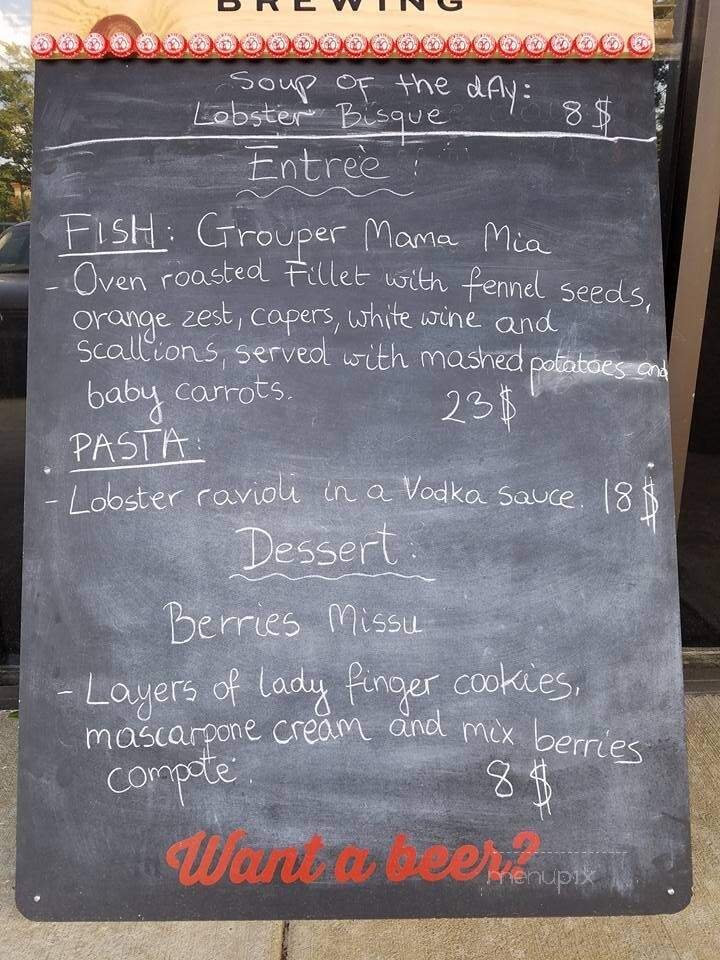 BREWING
Soup OF the dAy:
Lobster Bisque 8$
Entreè :
FISH: Grouper Mama Mia
- Oven roasted Fillet with fennel seeds,
orange zest, capers, white wine and
Scallions, served with mashed potatoes and
baby carrots. 23$
PASTA:
- Lobster ravioli in a Vodka sauce. 18$
Dessert:
Berries Missu
- Layers of lady finger cookies,
mascarpone cream and mix berries
compote. 8$
Want a beer?
menupix